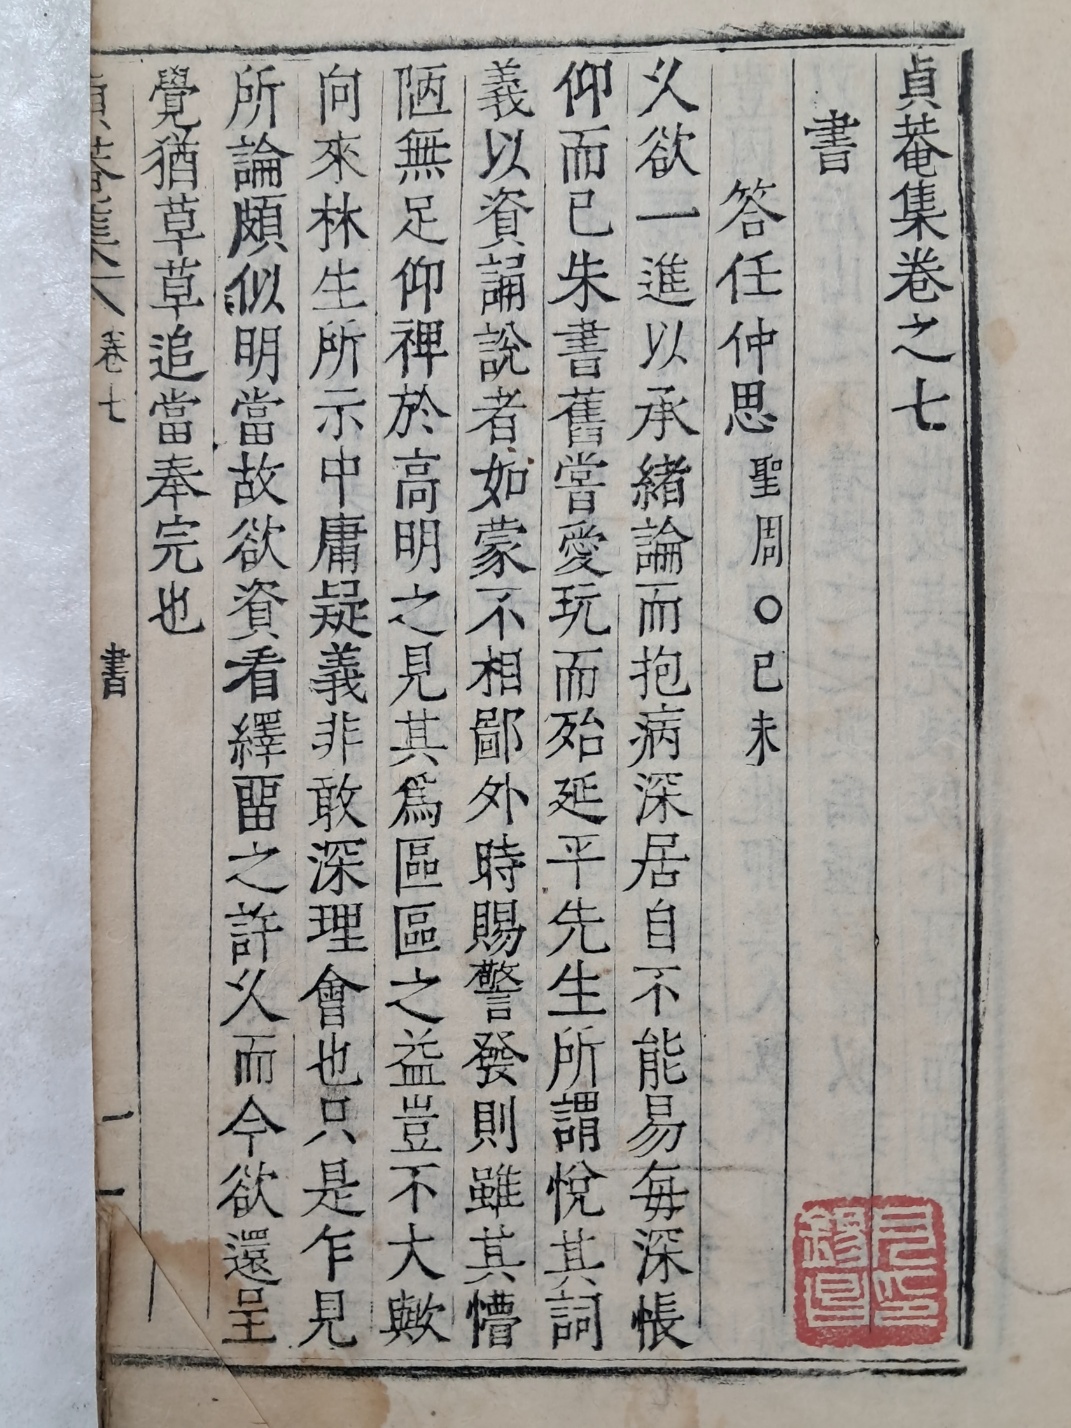 貞菴集卷之七
書
答任仲思聖周○己未
乆欲一進以承緖論而抱病深居自不能易每深悵
仰而已朱書舊嘗愛玩而殆延平先生所謂悅其詞
義以資誦說者如蒙不相鄙外時賜警發則雖其懵
陋無足仰裨於高明之見其爲區區之益豈不大歟
向來林生所示中庸疑義非敢深理會也只是乍見
所論頗似明當故欲資看繹畱之許乆而今欲還呈
覺猶草草追當奉完也
貞菴集 卷七 書 一